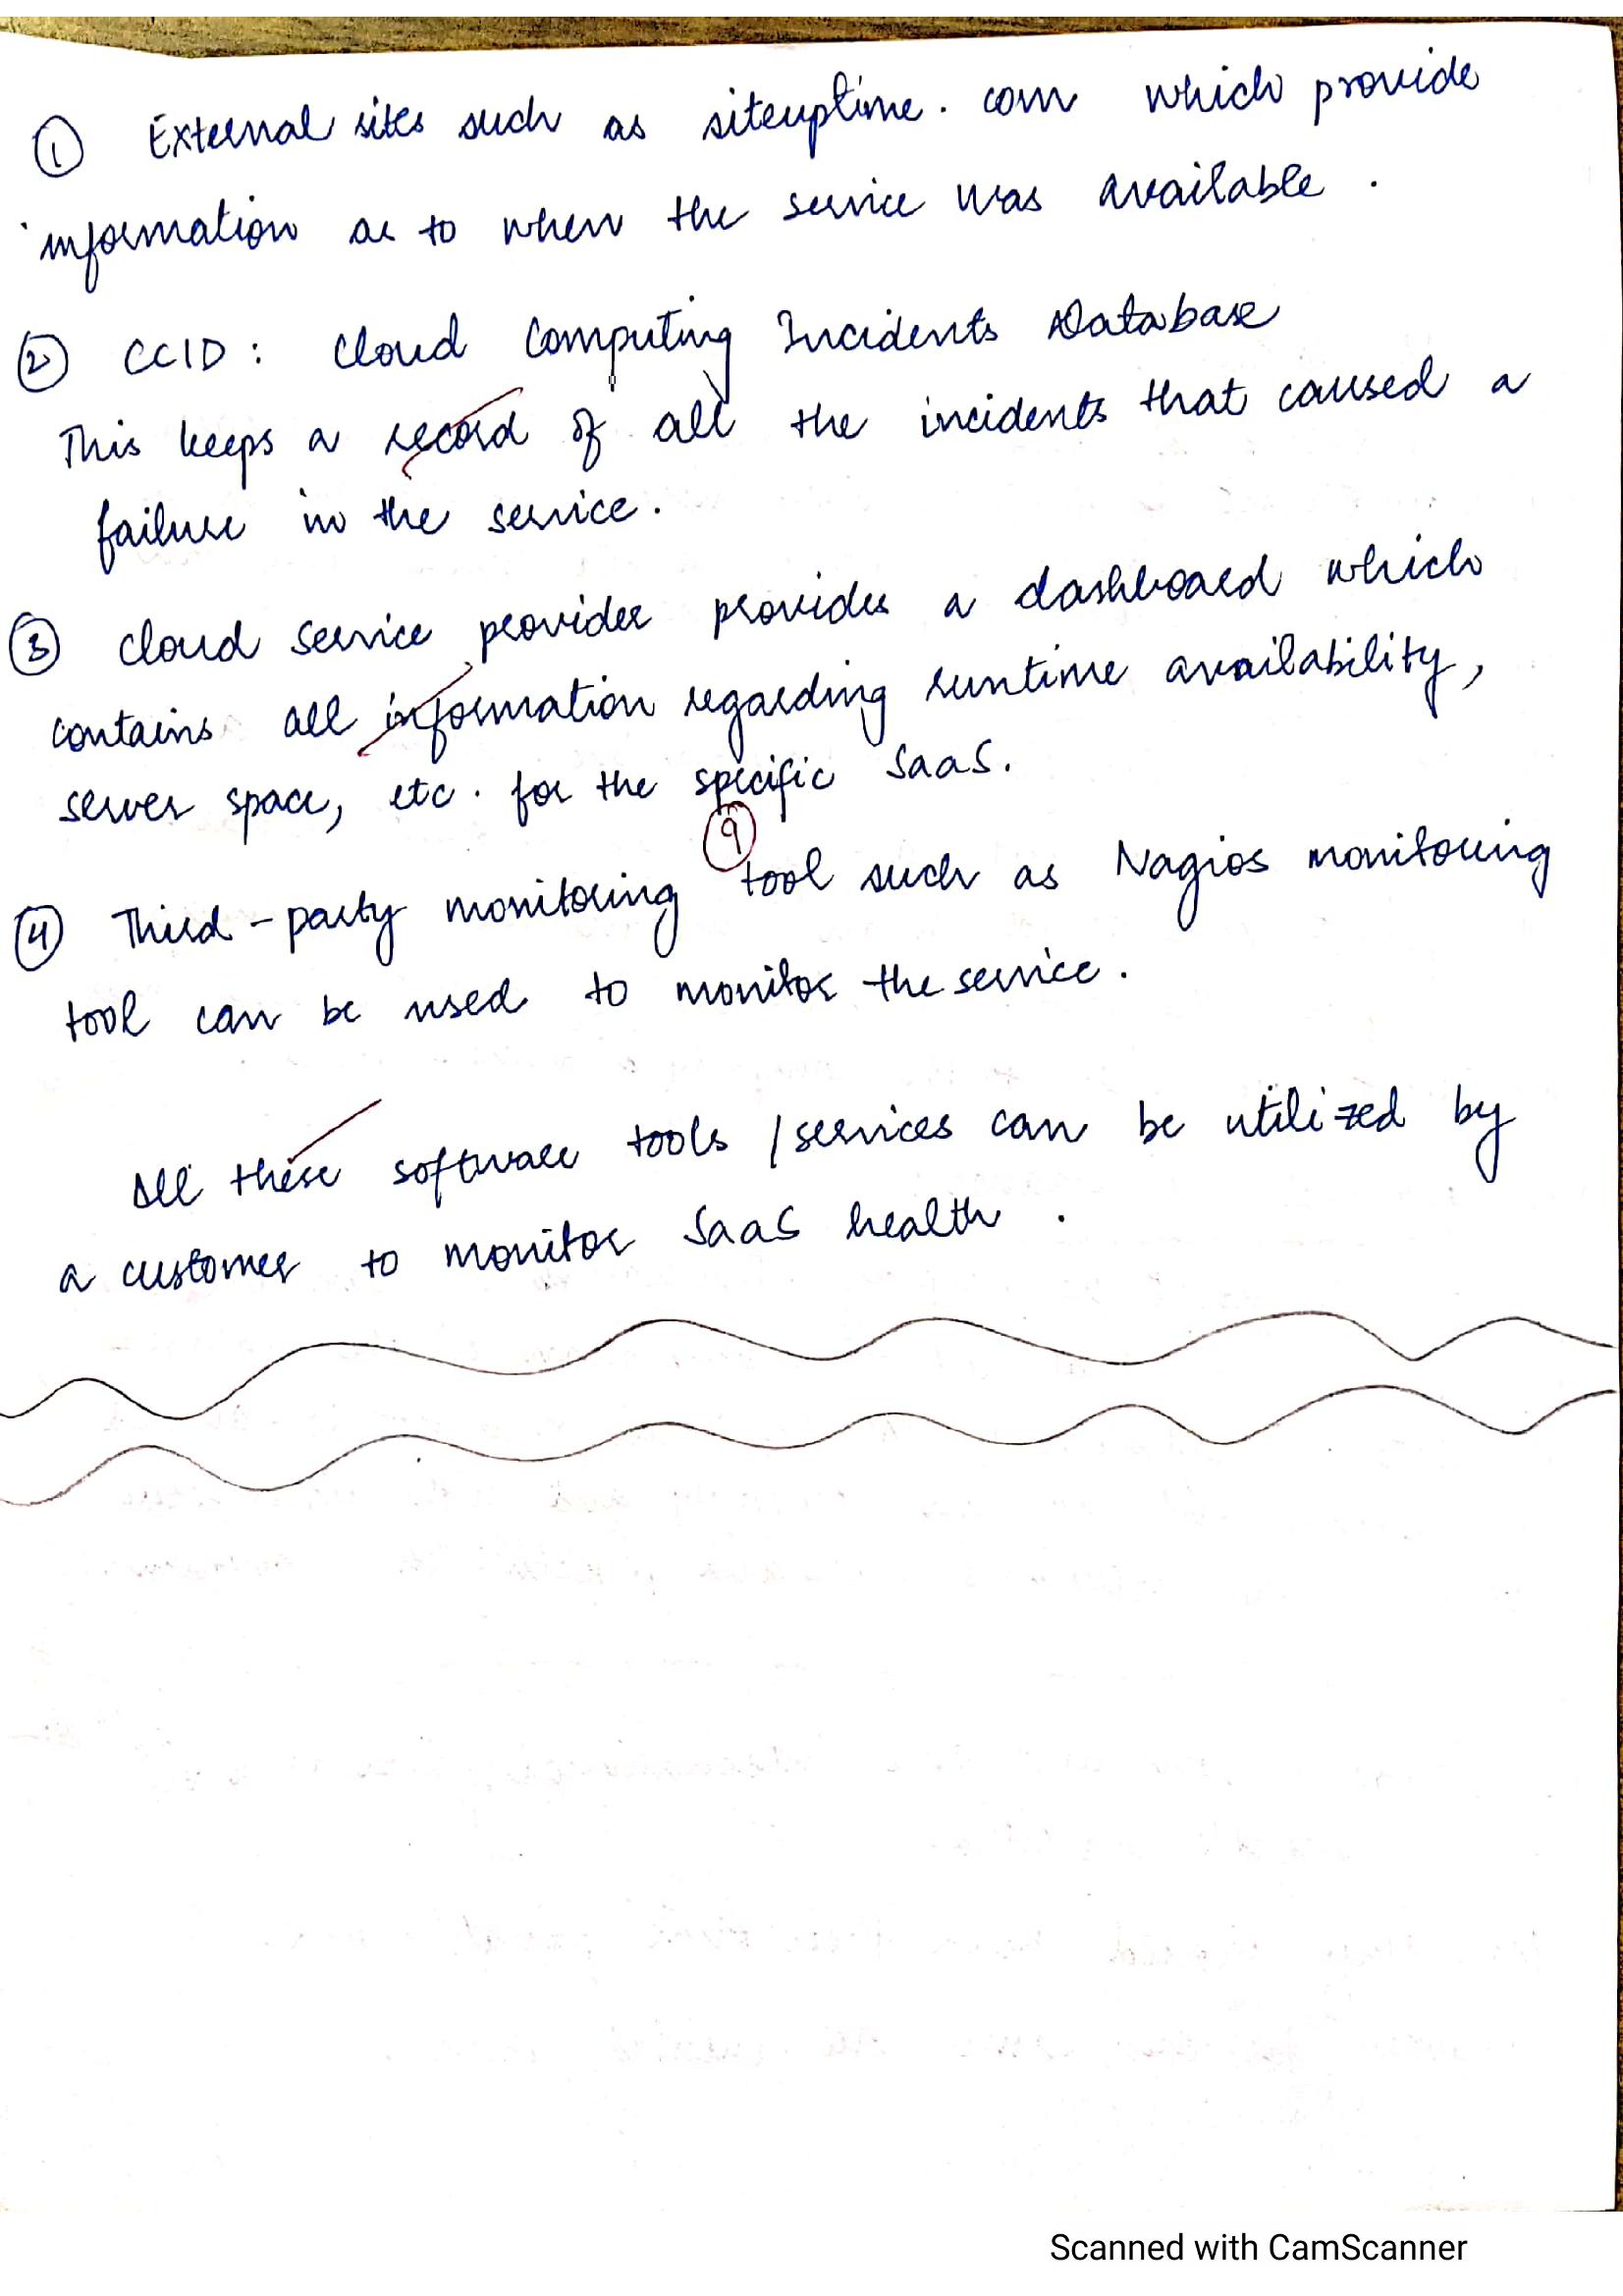 ① External sites such as siteuptime.com which provide
information as to when the service was available.
② CCID: Cloud Computing Incidents Database
This keeps a record of all the incidents that caused a
failure in the service.
③ Cloud service provider provides a dashboard which
contains all information regarding runtime availability,
server space, etc. for the specific SaaS.
⑨
④ Third-party monitoring tool such as Nagios monitoring
tool can be used to monitor the service.
All these software tools / services can be utilized by
a customer to monitor SaaS health.
Scanned with CamScanner